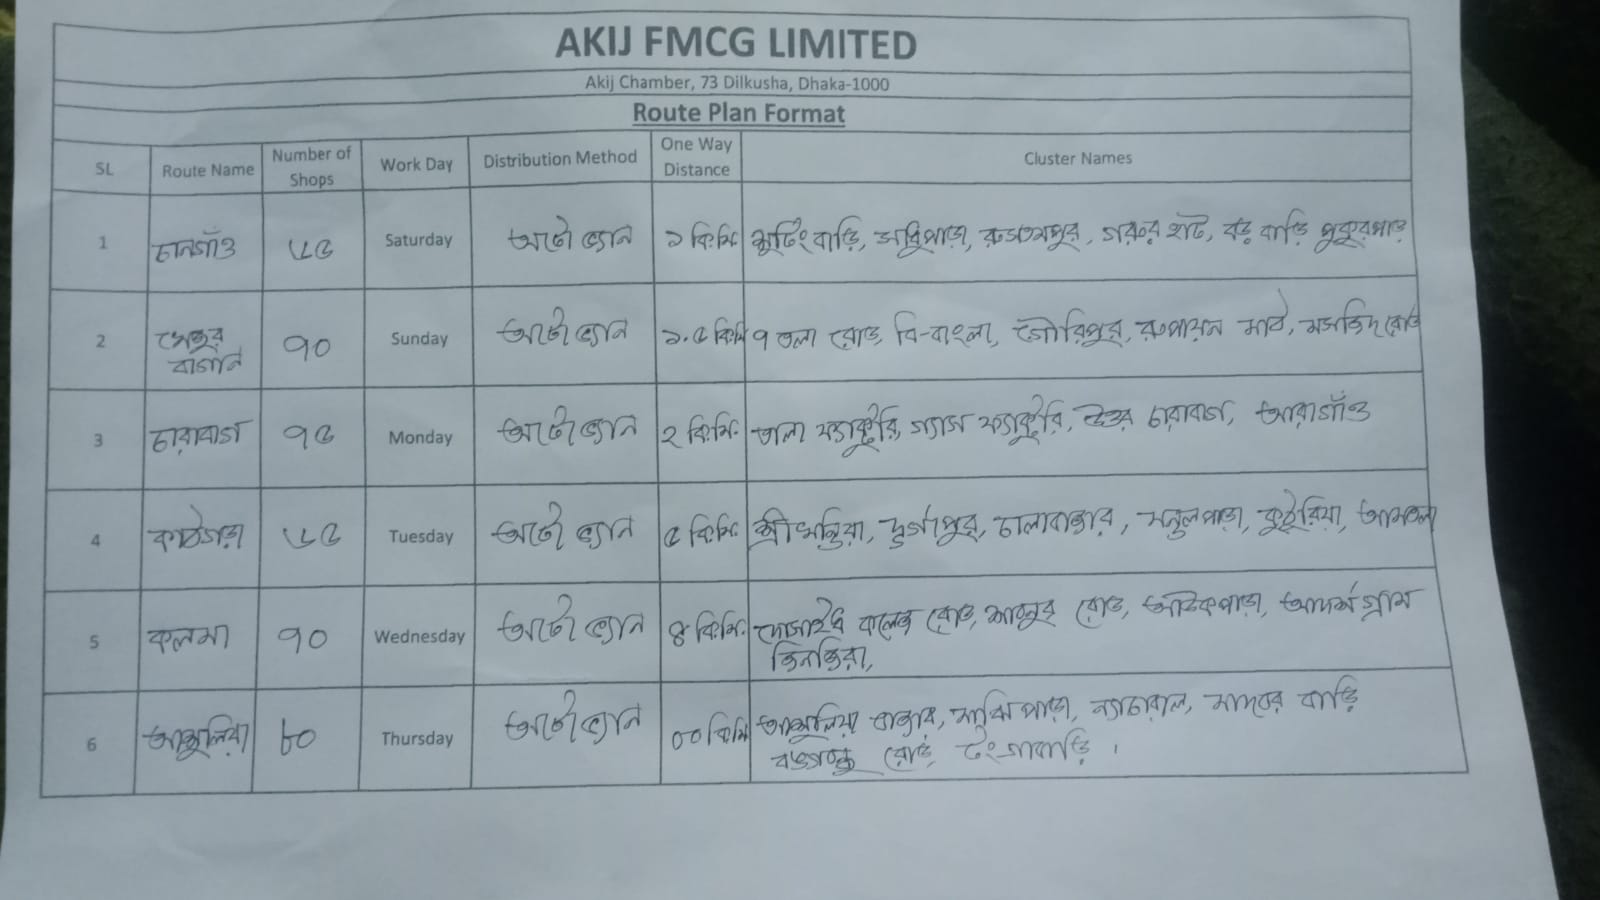 AKIJ FMCG LIMITED
Akij Chamber, 73 Dilkusha, Dhaka-1000
Route Plan Format
SL Route Name Number of Shops Work Day Distribution Method One Way Distance Cluster Names
1 চানগাঁও ৬৫ Saturday অটো ভ্যান ১ কি:মি: শুটিং বাড়ি, রুস্তমপুর, গরুর হাট, বড় বাড়ি পুকুরপাড়
2 খেজুর বাগান ৭০ Sunday অটো ভ্যান ১.৫ কি:মি ৭ তলা রোড, বি-বাংলা, গৌরিপুর, রুপায়ন মাঠ, মসজিদ রোড
3 চারাবাগ ৭৫ Monday অটো ভ্যান ২ কি:মি: তালা ফ্যাক্টরি, গ্যাস ফ্যাক্টরি, উত্তর চারাবাগ, আরাগাঁও
4 কাঠগড়া ৬৫ Tuesday অটো ভ্যান ৫ কি:মি: দুর্গাপুর, চালাবাজার, মন্ডলপাড়া, কুটুরিয়া, আমতলা
5 কলমা ৭০ Wednesday অটো ভ্যান ৪ কি:মি: দোসাইদ কলেজ রোড, রোড, আউকপাড়া, আদর্শ গ্রাম
জিনজিরা,
6 আশুলিয়া ৮০ Thursday অটো ভ্যান কি:মি আশুলিয়া বাজার, মাঝি পাড়া, ন্যাচারাল, মাদবর বাড়ি
বঙ্গবন্ধু রোড, টংগাবাড়ি।